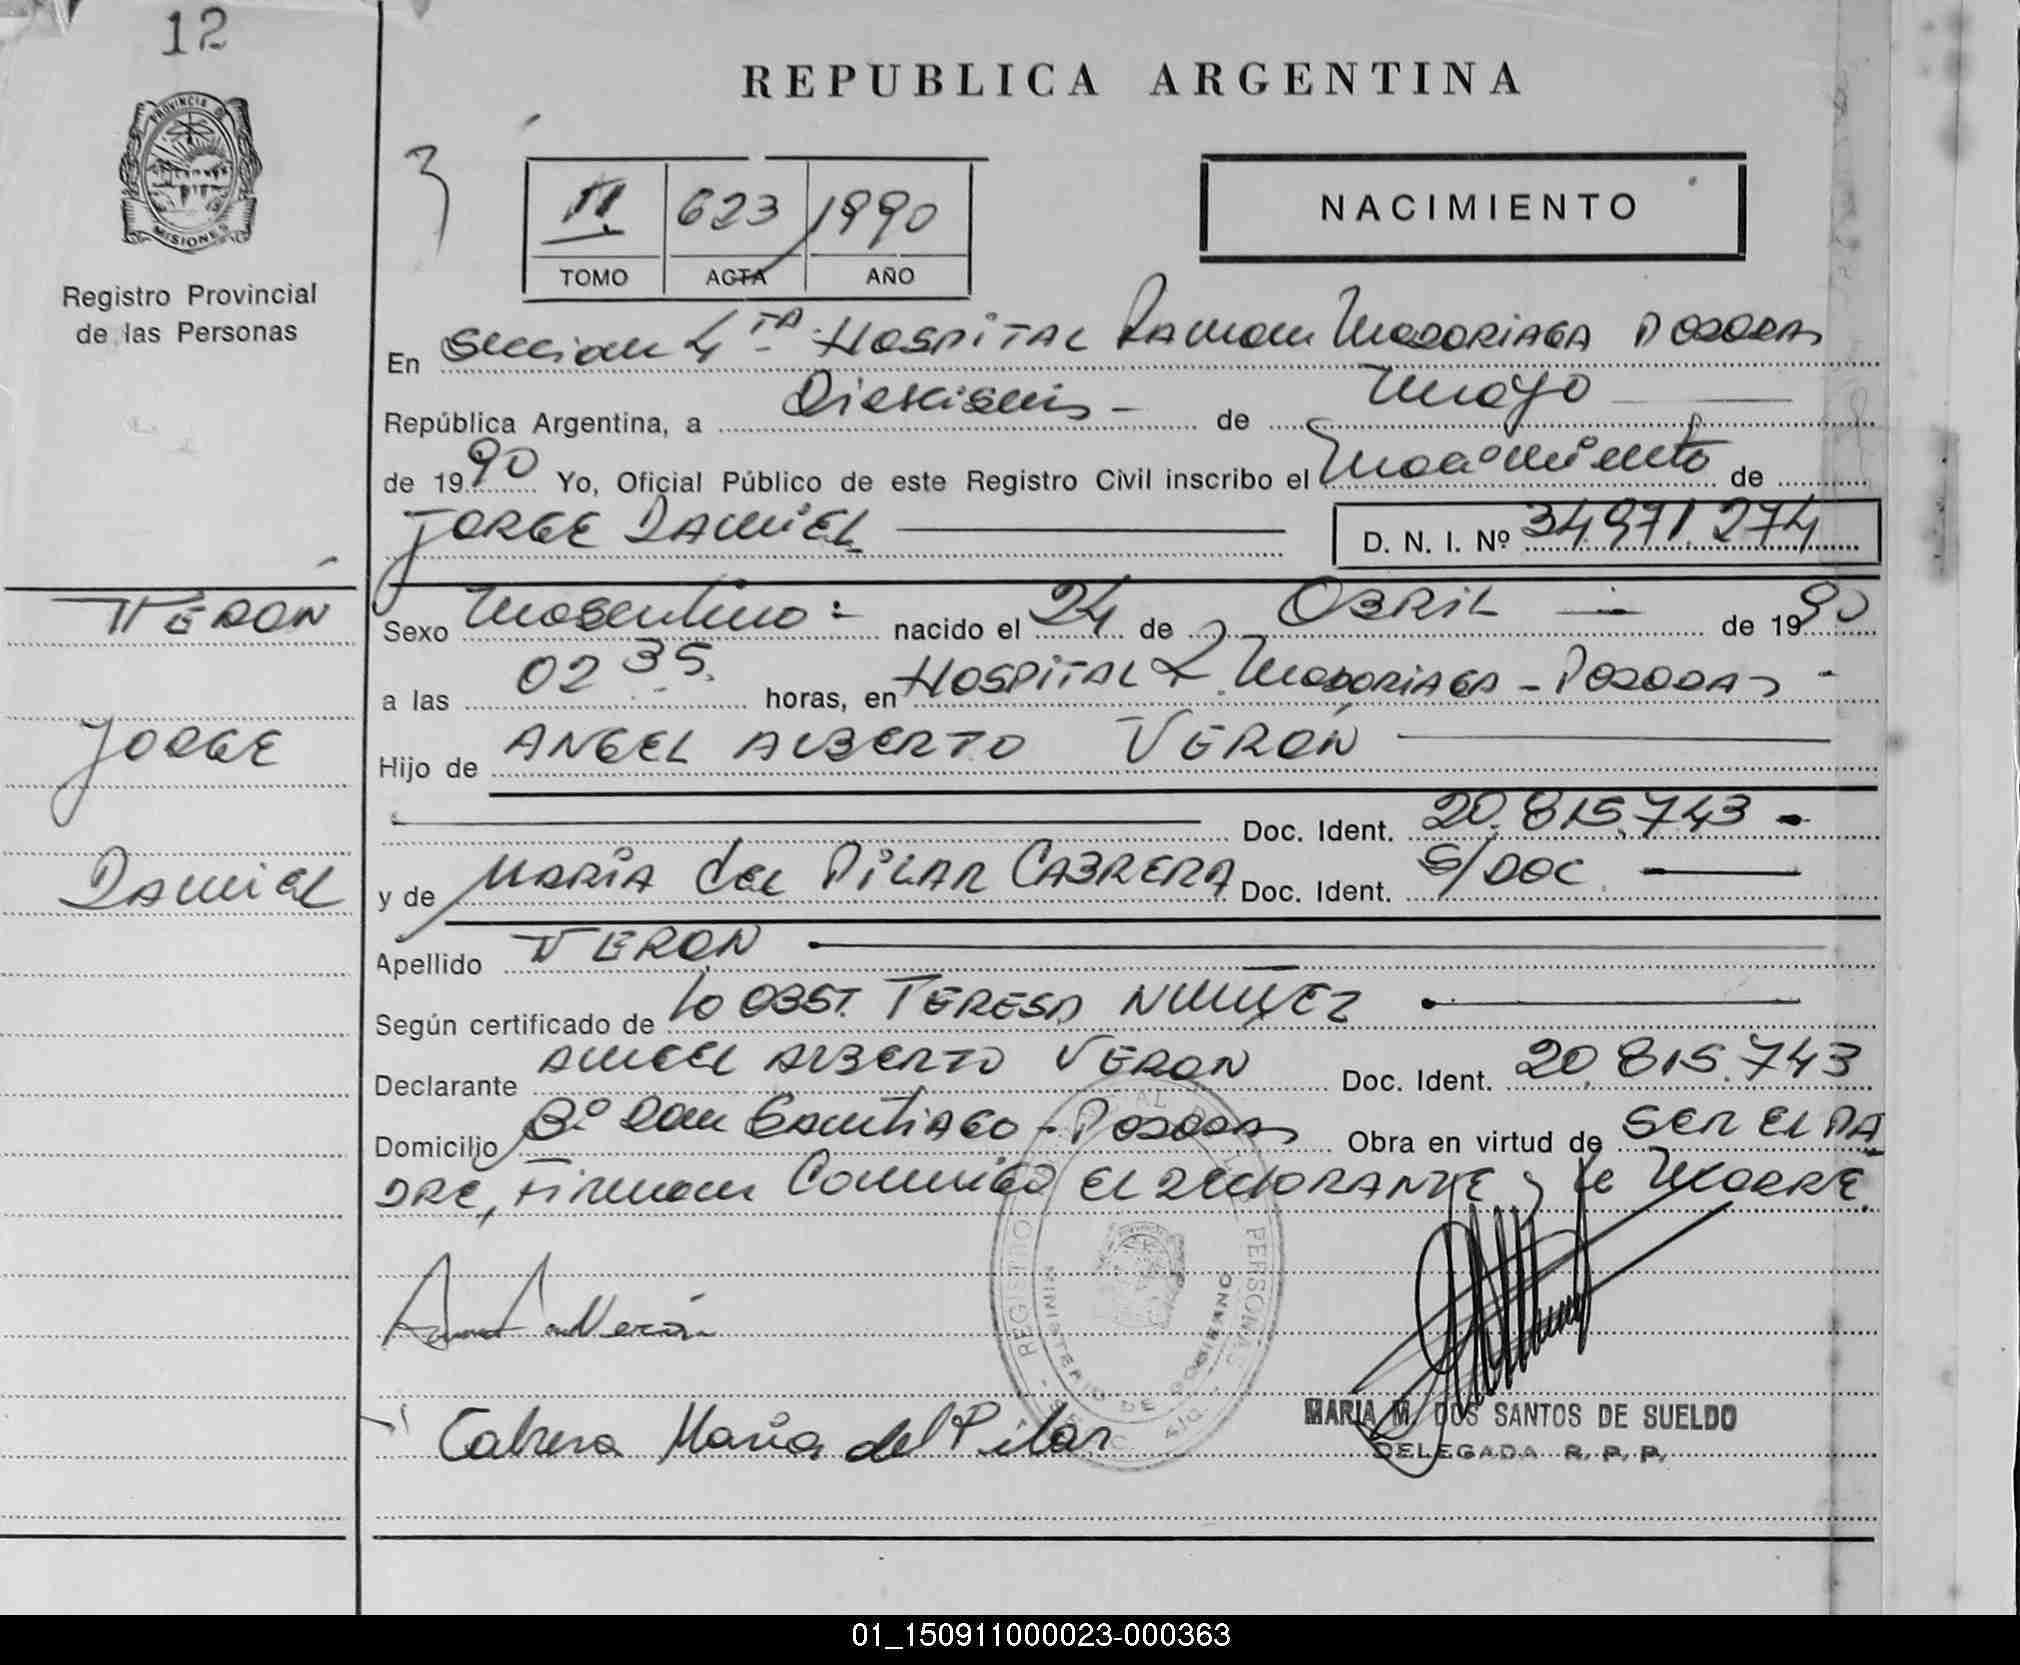 12
PROVINCIA DE
MISIONES
Registro Provincial
de las Personas
VERON
JORGE
DANIEL
REPUBLICA ARGENTINA
3
II 623 1990
TOMO ACTA AÑO
NACIMIENTO
En Seccion 4TA - HOSPITAL RAMON MADARIAGA POSADAS
República Argentina, a Dieciseis - de Mayo
de 1990 Yo, Oficial Público de este Registro Civil inscribo el Nacimiento de
JORGE DANIEL D. N. I. Nº 34.971.274
Sexo Masculino = nacido el 24 de ABRIL - de 1990
a las 02 35. horas, en HOSPITAL R. MADARIAGA - POSADAS -
Hijo de ANGEL ALBERTO VERÓN
Doc. Ident. 20.815.743 -
y de MARIA del PILAR CABRERA Doc. Ident. S/DOC.
Apellido VERON
Según certificado de la OBST. TERESA NUÑEZ
Declarante ANGEL ALBERTO VERON Doc. Ident. 20.815.743
Domicilio Bº Don SANTIAGO - POSADAS Obra en virtud de SER EL PA
DRE, Firman Conmigo EL DECLARANTE y la MADRE.
REGISTRO PERSONAS
MINISTERIO DE GOBIERNO
Verón
Cabrera María del Pilar
MARIA M. DOS SANTOS DE SUELDO
DELEGADA R. P. P.
01_150911000023-000363